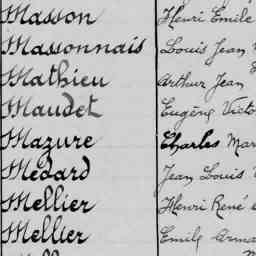 Masson Henri Emile
Massonnais Louis Jean
Mathieu Arthur Jean
Maudet Eugène Victo
Mazure Charles Mar
Médard Jean Louis
Mellier Henri René
Mellier Emile Arma